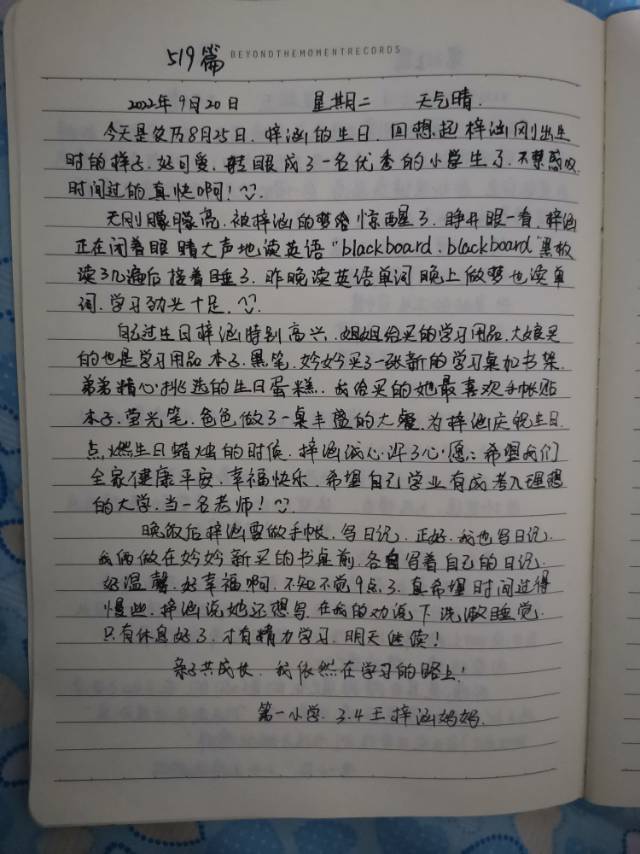 519篇 BEYONDTHEMOMENTRECORDS
2022年9月20日 星期二 天气晴.
今天是农历8月25日,梓涵的生日,回想起梓涵刚出生
时的样子,好可爱,转眼成了一名优秀的小学生了,不禁感叹
时间过的真快啊!
天刚朦朦亮,被梓涵的梦 惊醒了,睁开眼一看,梓涵
正在闭着眼睛大声地读英语"blackboard、blackboard"黑板
读了几遍后接着睡了,昨晚读英语单词晚上做梦也读单
词,学习劲头十足,
自己过生日梓涵特别高兴,姐姐给买的学习用品,大娘买
的也是学习用品 本子,黑笔,妗妗买了一张新的学习桌加书架,
弟弟精心挑选的生日蛋糕,我给买的她最喜欢手帐贴
本子,荧光笔,爸爸做了一桌丰盛的大餐,为梓涵庆祝生日,
点燃生日蜡烛的时候,梓涵诚心许了心愿:希望我们
全家健康平安,幸福快乐,希望自己学业有成考入理想
的大学,当一名老师!
晚饭后梓涵要做手帐,写日记,正好,我也写日记,
我俩做在妗妗新买的书桌前,各自写着自己的日记,
好温馨,好幸福啊,不知不觉9点了,真希望时间过得
慢些,梓涵说她还想写,在我的劝说下洗漱睡觉,
只有休息好了,才有精力学习,明天继续!
亲子共成长,我依然在学习的路上!
第一小学,3.4王梓涵妈妈.